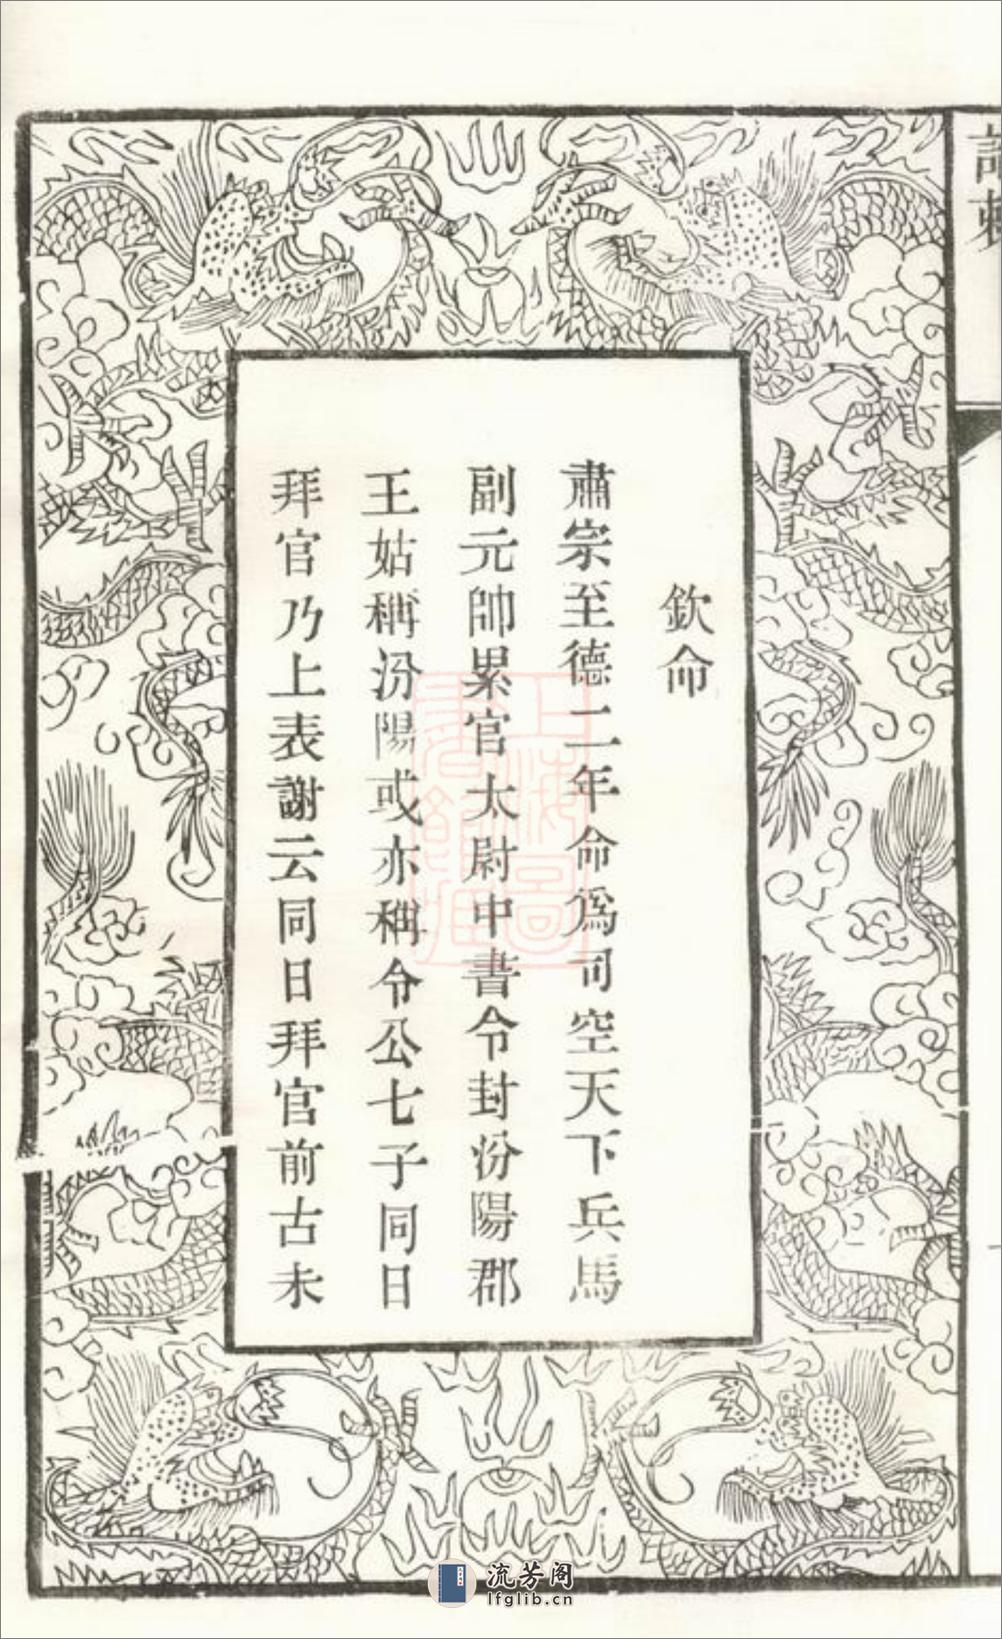 欽命
肅宗至德二年命爲司空天下兵馬
副元帥累官太尉中書令封汾陽郡
王姑稱汾陽或亦稱令公七子同日
拜官乃上表謝云同日拜官前古未
上海圖書館藏
流芳阁
lfglib.cn